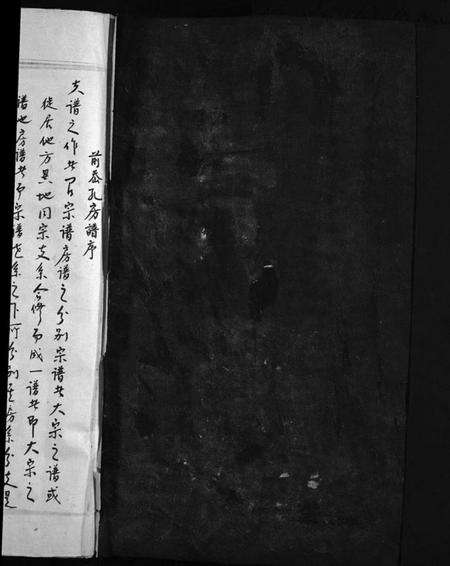 前岙孔房譜序
夫譜之作其有宗譜房譜之分别宗譜其大宗之譜或
徙居他方異地同宗支系合修而成一譜其即大宗之
譜也房譜其即宗譜支系之下所分别